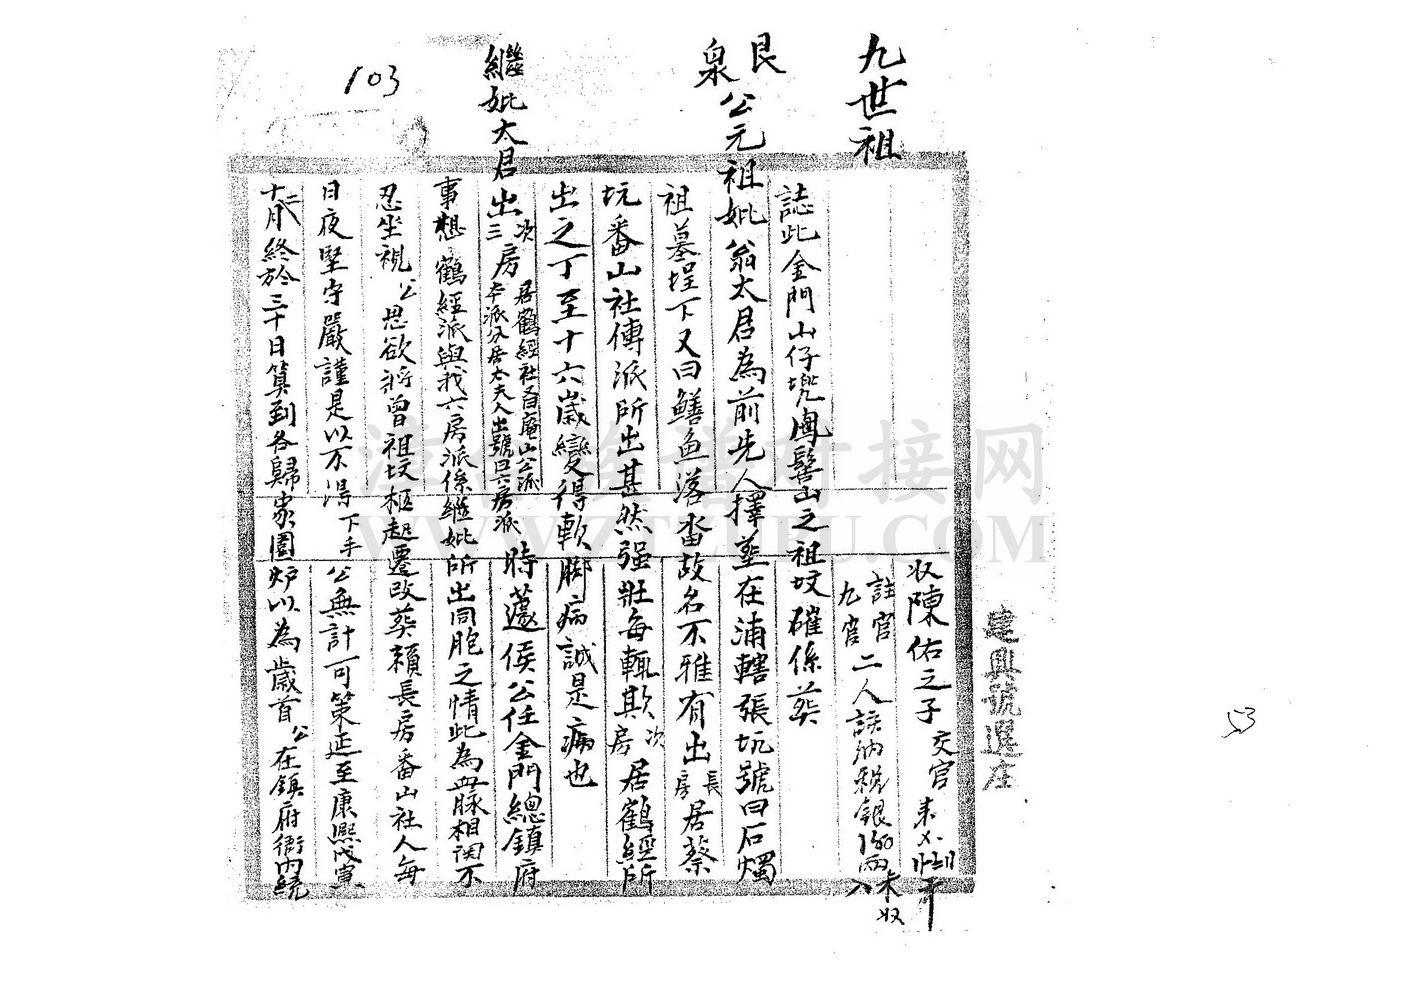 九世祖
收陳佑之子 交官
註官九官二人該納稅銀 兩未收
誌此金門山仔兜鳳髻山之祖坟確係葬
艮泉公元祖妣翁太君為前先人擇葬在浦轄張坑號曰石燭
祖墓埕下又曰鱔魚落畓故名不雅有出長房居蔡
坑番山社傳派所出甚然强壯每輒欺次房居鶴經所
出之丁至十六歲變得軟腳病誠是病也
繼妣太君出次三房居鶴經社 庵山公派本派分居太夫人出號曰六房派時薳侯公任金門總鎮府
事想鶴經派與我六房派係繼妣所出同胞之情此為血脉相関不
忍坐視公思欲將曾祖坟柩起遷改葬賴長房番山社人每
日夜堅守嚴謹是以不得下手公無計可策延至康熙戊寅
十二月終於三十日算到各歸家圍炉以為歲首公在鎮府衙內統
建興號選庄
103
53
漳台族谱对接网
WWW.ZTZUPU.COM